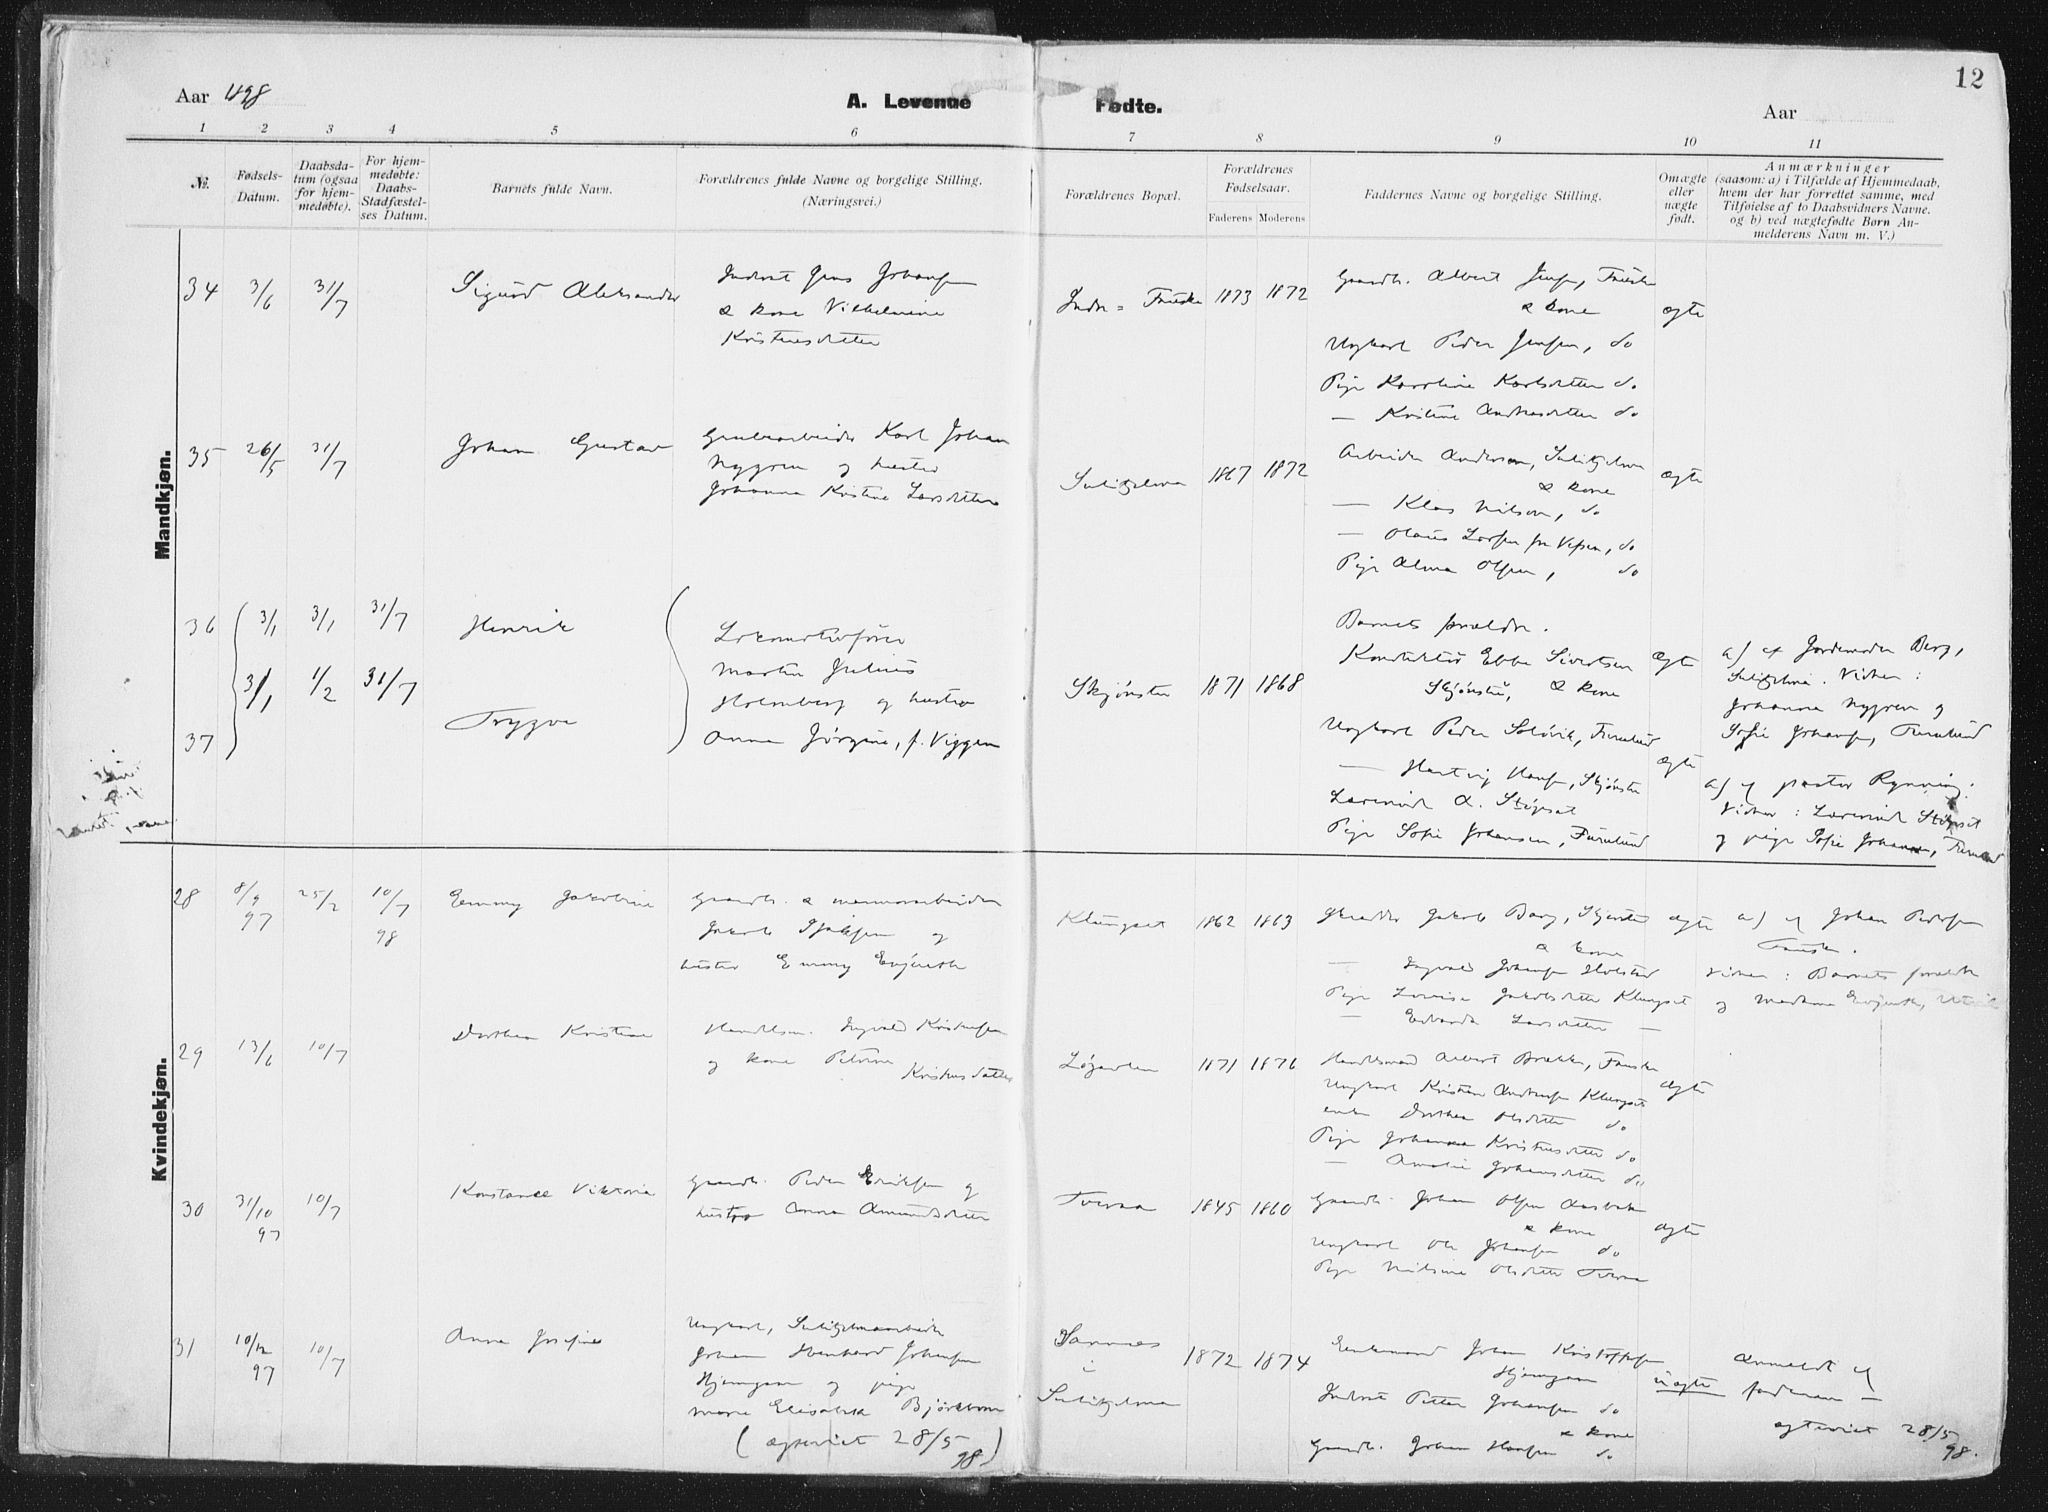 12
Aar 1898
A. Levende
Fødte.
Aar
1 2 3 4 5 6 7 8 9 10 11
№.
Fødsels-
Datum.
Daabsda-
tum (ogsaa
for hjem-
medøbte).
For hjem-
medøbte:
Daabs-
Stadfæstel-
ses Datum.
Barnets fulde Navn.
Forældrenes fulde Navne og borgelige Stilling.
(Næringsvei.)
Forældrenes Bopæl.
Forældrenes
Fødselsaar.
Faderens Moderens
Faddernes Navne og borgelige Stilling.
Omægte
eller
uægte
født.
Anmærkninger
(saasom: a) i Tilfælde af Hjemmedaab,
hvem der har forrettet samme, med
Tilføielse af to Daabsvidners Navne.
og b) ved uægtefødte Børn An-
melderens Navn m. V.)
Mandkjøn.
34 3/6 31/7 Sigurd Aleksander
Inderst Jens Johansen
& kone Vilhelmine
Kristensdatter
Indr = Fauske 1873 1872
Gaardb. Albert Jensen, Fauske
& kone
Ungkarl Peder Jensen, do
Pige Karoline Karlsdatter do
— Kristine Andreasdatter do
ægte
35 26/5 31/7 Johan Gustav
Grubearbeider Karl Johan
Nygren og hustru
Johanna Kristine Larsdatter
Sulitjelma 1867 1872
Arbeider Anderson, Sulitjelma
& kone
— Klas Nilson, do
— Olaus Larsen fra Vefsen, do
Pige Alma Olsen, do
ægte
36 3/1 3/1 31/7 Henrik
37 3/1 1/2 31/7 Trygve
Lokomotivfører
Martin Julius
Holmberg og hustru
Anna Jørgine, f. Viggen
Skjønstu 1871 1868
Barnets forældre.
Konduktør Ebbe Sivertsen
Skjønstu, & kone
Ungkarl Peder Soløvik, Furulund
— Hartvig Hansen, Skjønstu
Lærerinde A. Støpset
Pige Sofie Johansen, Furulund
ægte
ægte
a) af Jordemoder Berg,
Sulitjelma. Vidner:
Johanna Nygren og
Sofie Johansen, Furulund
a) af pastor Rynning.
Vidner: Lærerinde Støpset
og pige Sofie Johansen, Furulund
Kvindekjøn.
28 8/9 97 25/2 10/7 98 Emmy Jakobine
Gaardb. & marmorarbeider
Jakob
og
hustru Emmy Evjenth
Klungset 1862 1863
Jakob Berg, Skjerstad
& kone
— Ingvald Johansen Holstad
Pige Lovise Jakobsdatter Klungset
— Edvarda Larsdatter —
ægte
a) af Johan Pedersen
Fauske.
Vidner: Barnets forældre
og madame Evjenth,
29 13/6 10/7 Dorthea Kristine
Handelsm. Ingvald Kristensen
og kone Petrine
Kristensdatter
Løgavlen 1871 1876
Handelsmand Albert Brekke, Fauske
Ungkarl Kristen Andreasen Klungset
enke Dorthea Olsdatter do
Pige Johanna Kristensdatter do
— Amalie Johansdatter do
ægte
30 31/10 97 10/7 Konstance Viktoria
Gaardb. Peder Eriksen og
hustru Anna Amundsdatter
Tveraa 1845 1860
Gaardb. Johan Olsen Aasbak
& kone
Ungkarl Ole Johansen do
Pige Nilsine Olsdatter Tveraa
ægte
31 10/12 97 10/7 Anna Josefine
Ungkarl, Sulitjelmaarbeider
Johan Johansen
Hjemgaan og pige
Marie Elisabeth Bjørkbom
(ægteviet 28/5 98)
Sannes
i
Sulitjelma
1872 1874
Enkemand Johan Kristoffersen
Hjemgaan
Inderst Petter Johansen do
& kone
Gaardb. Johan Hansen do
uægte
Anmeldt af
faderen —
ægteviet 28/5 98.